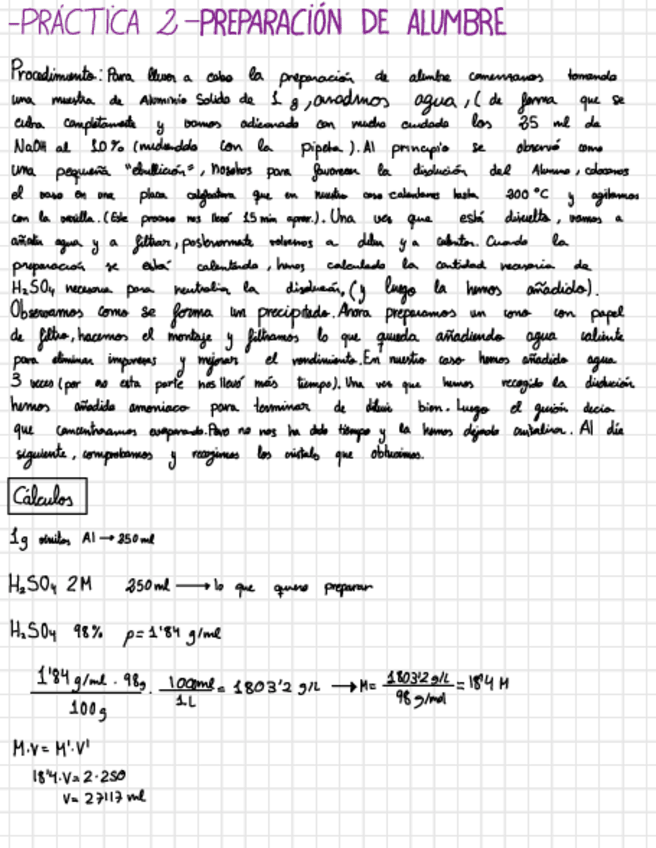 -PRÁCTICA 2-PREPARACIÓN DE ALUMBRE
Procedimiento: Para llevar a cabo la preparación de alumbre comenzamos tomando
una muestra de Aluminio Solido de 1 g, anadimos agua, ( de forma que se
cubra completamente y vamos adicionado con mucho cuidado los 35 ml de
NaOH al 10% (midiendolo con la pipeta). Al principio se observó como
una pequeña "ebullición", nosotros para favorecer la disolución del Aluminio, colocamos
el vaso en una placa calefactora que en nuestro caso calentamos hasta 200 °C y agitamos
con la varilla. (Este proceso nos llevó 15 min aprox.). Una vez que está disuelta, vamos a
añadir agua y a filtrar, posteriormente volvemos a diluir y a calentar. Cuando la
preparación se está calentando, hemos calculado la cantidad necesaria de
H₂SO₄ necesaria para neutralizar la disolución, (y luego la hemos añadido).
Observamos como se forma un precipitado. Ahora preparamos un cono con papel
de filtro, hacemos el montaje y filtramos lo que queda añadiendo agua caliente
para eliminar impurezas y mejorar el rendimiento. En nuestro caso hemos añadido agua
3 veces (por eso esta parte nos llevó más tiempo). Una vez que hemos recogido la disolución
hemos añadido amoniaco para terminar de diluir bien. Luego el guión decia
que concentraramos evaporando. Pero no nos ha dado tiempo y la hemos dejado cristalizar. Al día
siguiente, comprobamos y recogimos los cristales que obtuvimos.
Cálculos
1g Al → 250 ml
H₂SO₄ 2M 250 ml → lo que quiero preparar
H₂SO₄ 98% ρ = 1'84 g/ml
1'84 g/ml · 98g / 100g · 1000ml / 1L = 1803'2 g/L → M = 1803'2 g/L / 98 g/mol = 18'4 M
M·V = M'·V'
18'4·V = 2·250
V = 27'17 ml